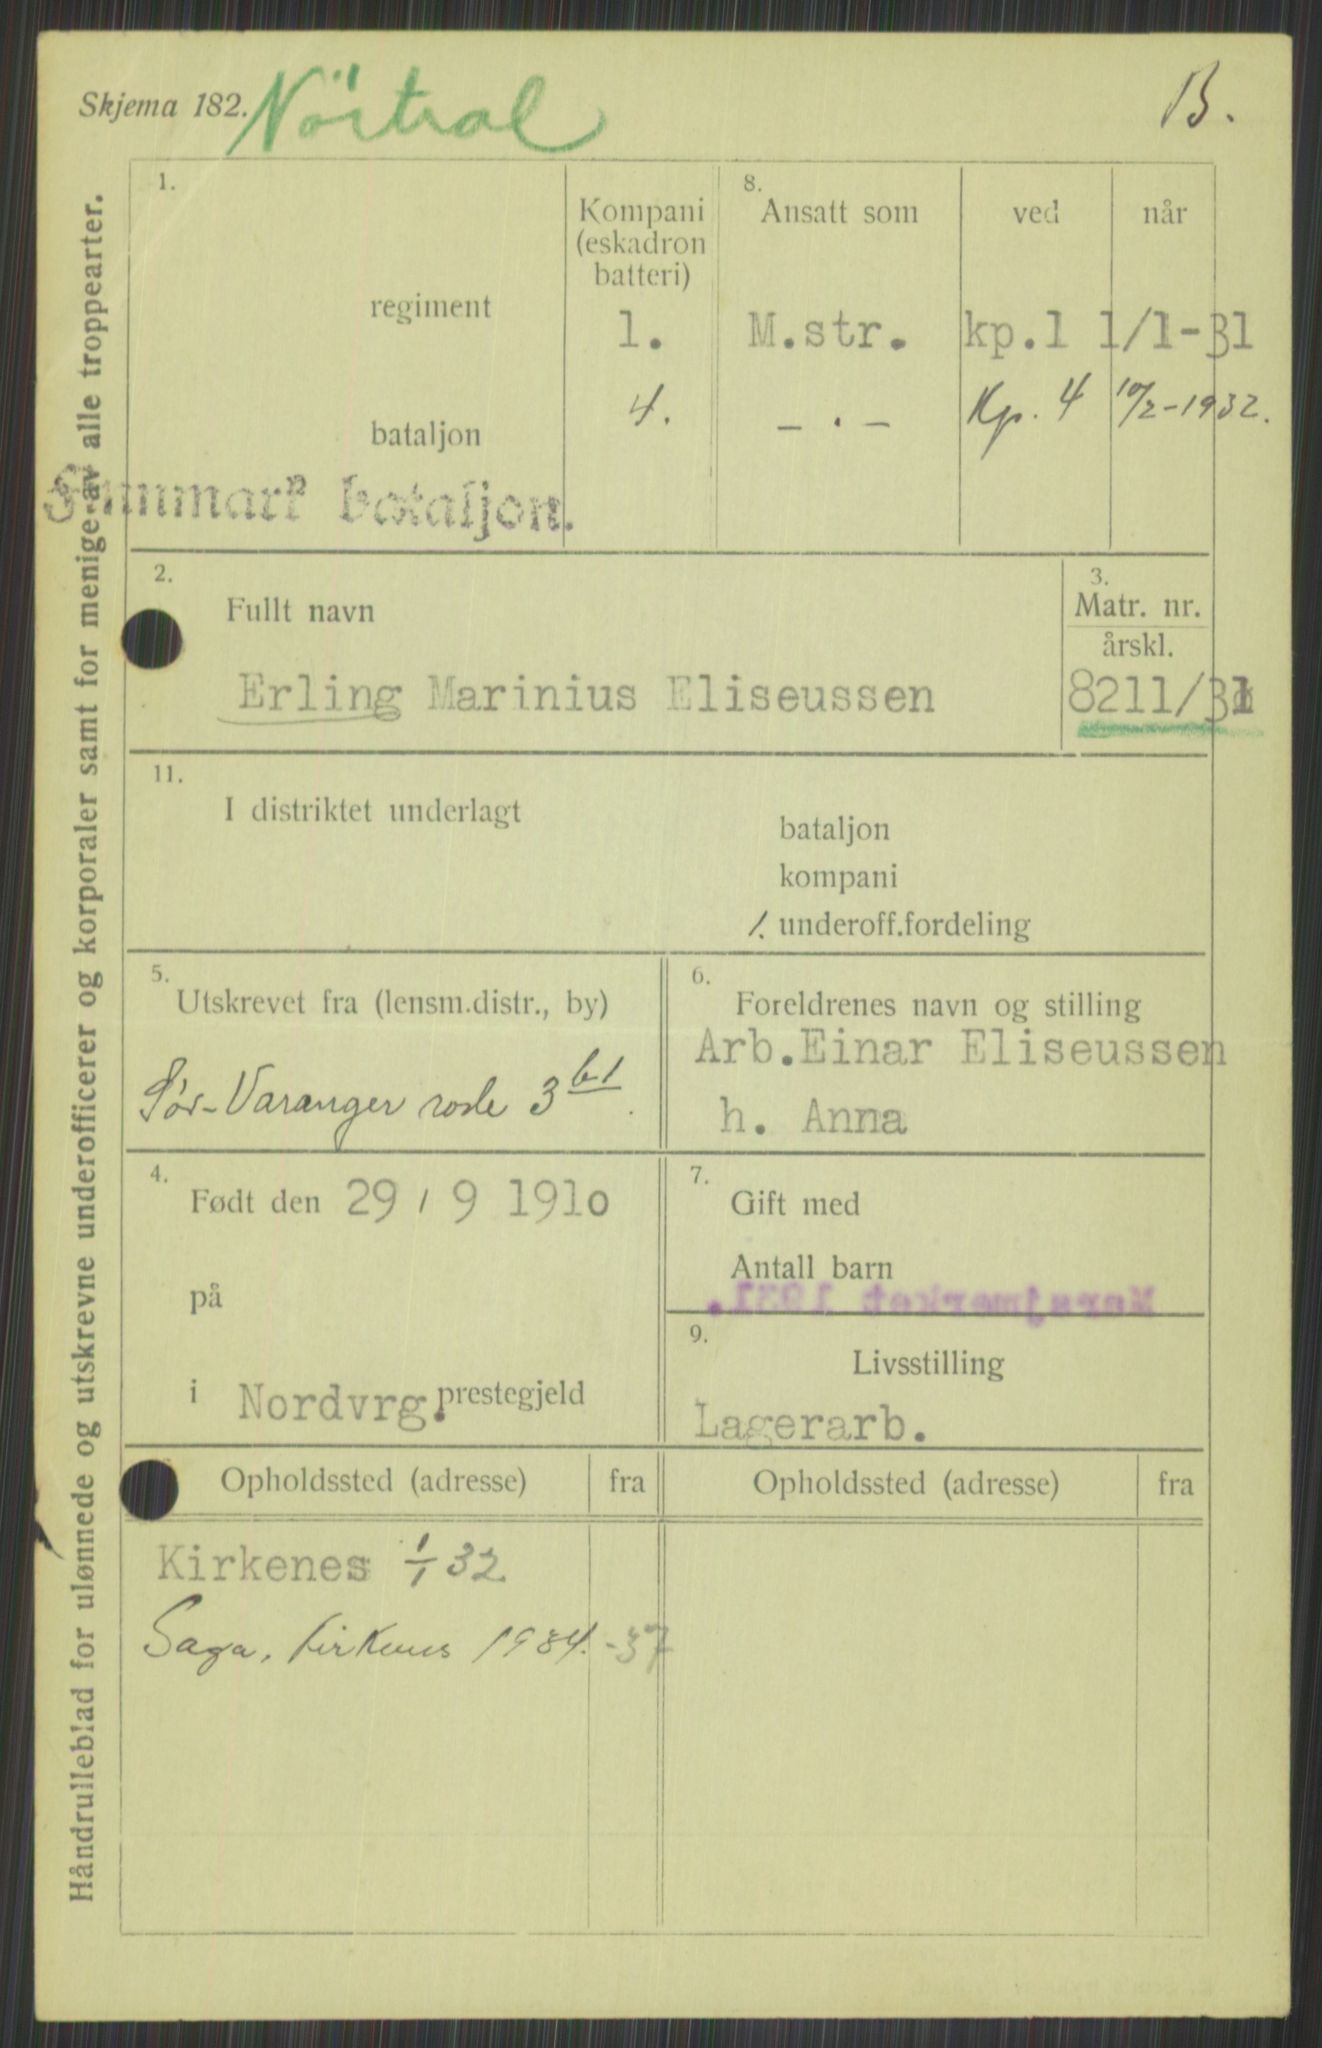 Skjema 182.
Nöitral
B.
Håndrulleblad for ulønnede og utskrevne underofficerer og korporaler samt for menige av alle troppearter.
1.
regiment
bataljon
Finnmark bataljon.
Kompani
(eskadron
batteri)
1.
4.
8.
Ansatt som
ved
når
M.str.
kp.1
1/1-31
— . —
Kp. 4
10/2-1932.
2.
Fullt navn
Erling Marinius Eliseussen
3.
Matr. nr.
årskl.
8211/31
11.
I distriktet underlagt
bataljon
kompani
1. underoff.fordeling
5.
Utskrevet fra (lensm.distr., by)
Sør-Varanger rode 3 b1.
6.
Foreldrenes navn og stilling
Arb.Einar Eliseussen
h. Anna
4.
Født den 29 / 9 1910
på
i Nordvrg. prestegjeld
7.
Gift med
Antall barn
Marsjmerket 1931.
9.
Livsstilling
Lagerarb.
Opholdssted (adresse)
fra
Opholdssted (adresse)
fra
Kirkenes 1/1 32
Saga, Kirkenes 1934.-37